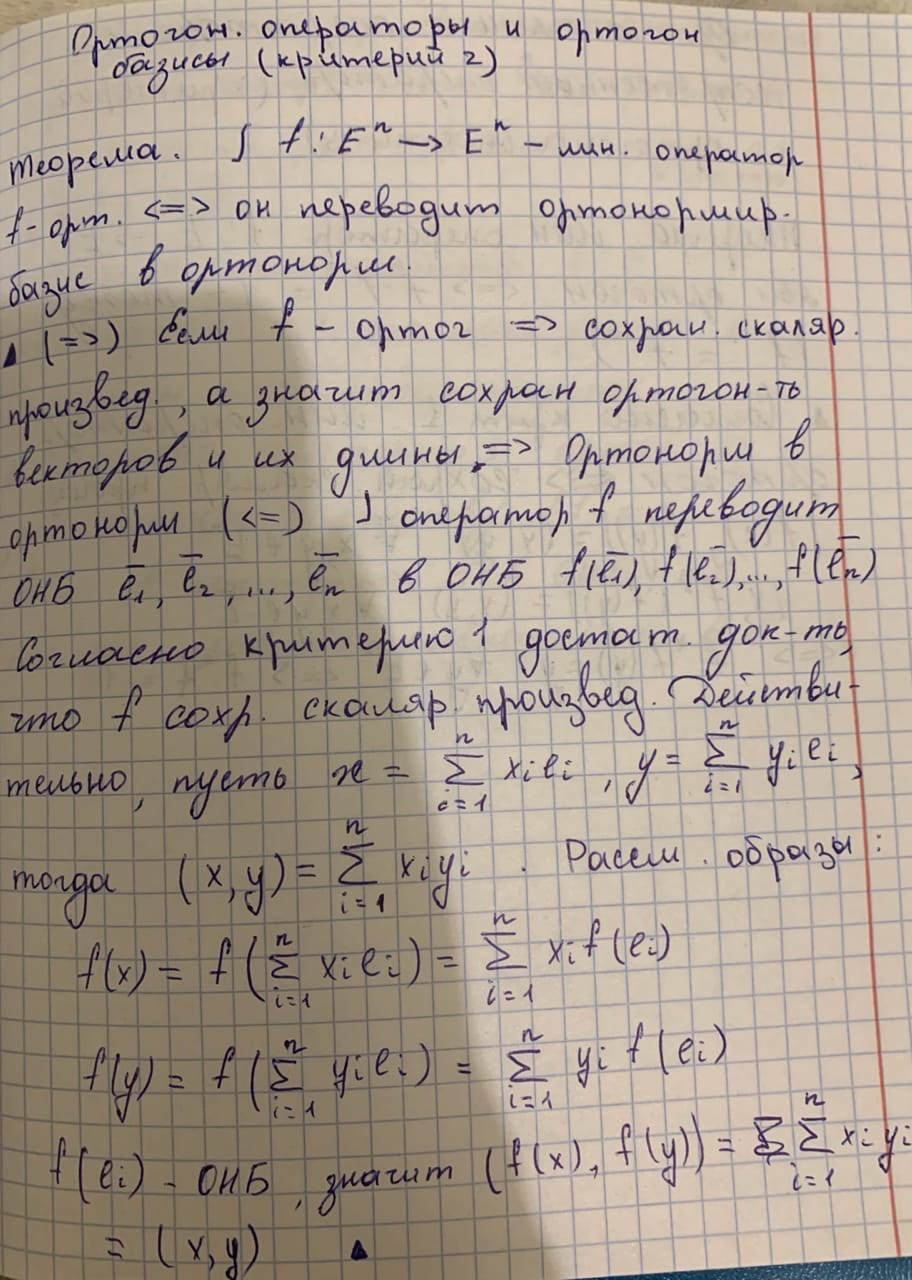 Ортогон. операторы и ортогон
базисы (критерий 2)
Теорема. ∫ f : Eⁿ → Eⁿ – лин. оператор
f - орт. <=> он переводит ортонормир.
базис в ортонорм.
▲ (=>) Если f – ортог => сохран. скаляр.
произвед., а значит сохран ортогон-ть
векторов и их длины, => Ортонорм в
ортонорм (<=) ∫ оператор f переводит
ОНБ e̅₁, e̅₂, ..., e̅ₙ в ОНБ f(e̅₁), f(e̅₂), ..., f(e̅ₙ)
Согласно критерию 1 достат. док-ть,
что f сохр. скаляр. произвед. Действи-
тельно, пусть x = ∑ⁿᵢ₌₁ xᵢeᵢ, y = ∑ⁿᵢ₌₁ yᵢeᵢ,
тогда (x, y) = ∑ⁿᵢ₌₁ xᵢyᵢ. Рассм. образы:
f(x) = f(∑ⁿᵢ₌₁ xᵢeᵢ) = ∑ⁿᵢ₌₁ xᵢf(eᵢ)
f(y) = f(∑ⁿᵢ₌₁ yᵢeᵢ) = ∑ⁿᵢ₌₁ yᵢf(eᵢ)
f(eᵢ) – ОНБ, значит (f(x), f(y)) = ∑ⁿᵢ₌₁ xᵢyᵢ
= (x, y) ▲